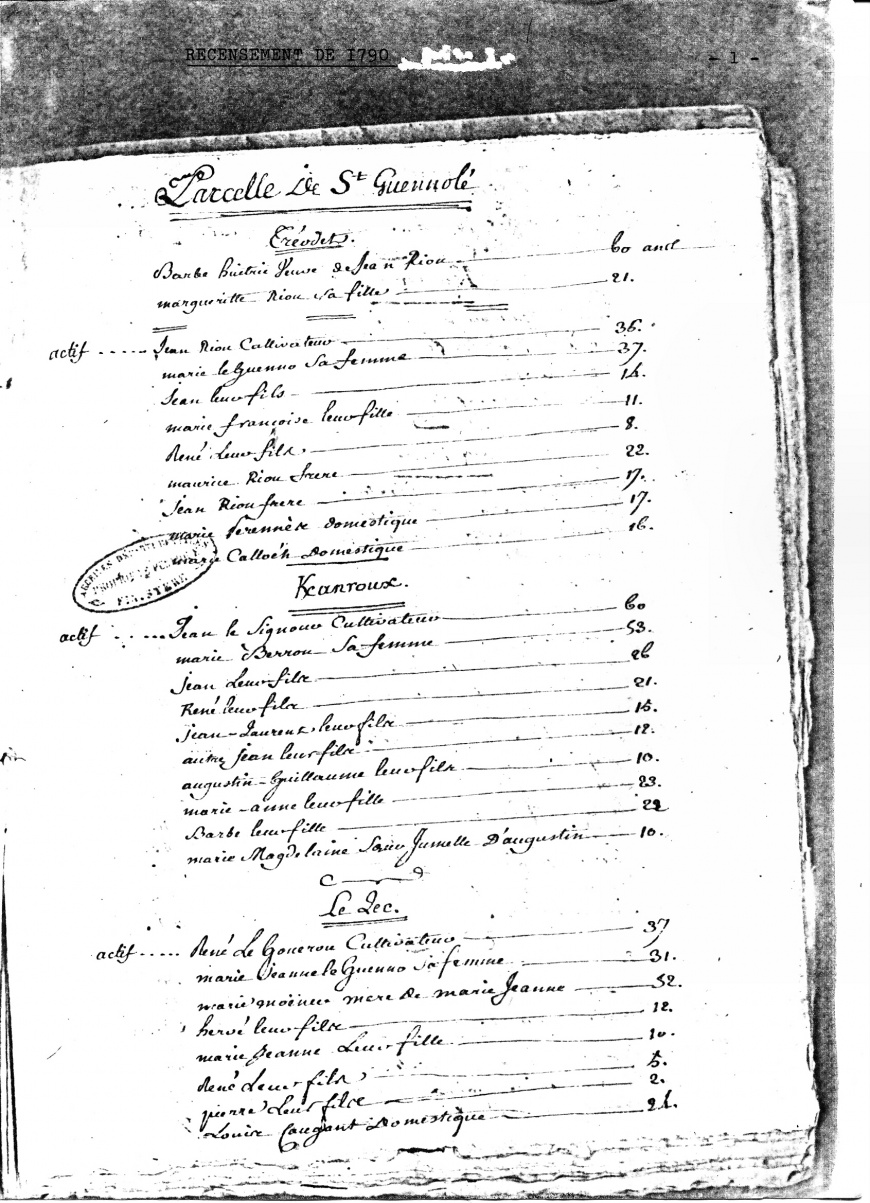 RECENSEMENT DE 1790
- 1 -
Parcelle De St Guennolé
Tréodet.
Barbe huitric Veuve de Jean Riou 60 ans
margueritte Riou sa fille 21.
actif ..... Jean Riou Cultivateur 36.
marie le Guenno sa femme 37.
Jean leur fils 14.
marie françoise leur fille 11.
René Leur fils 8.
maurice Riou frere 22.
Jean Riou frere 17.
marie domestique 17.
marie Calloc'h Domestique 16.
ARCHIVES
FINISTERE
Kanroux.
actif ..... Jean le Signour Cultivateur 60
marie Berrou Sa femme 53.
jean Leur fils 26
René leur fils 21.
jean-Laurent leur fils 15.
autre jean leur fils 12.
augustin-Guillaume leur fils 10.
marie-anne leur fille 23.
Barbe leur fille 22
marie Magdelaine Sœur Jumelle D'augustin 10.
Le Zec.
actif ..... René Le Goueron Cultivateur 37
marie Jeanne le Guenno Sa femme 31.
marie mere de marie Jeanne 52.
hervé leur fils 12.
marie Jeanne Leur fille 10.
René Leur fils 5.
pierre Leur fils 2.
Louise Caugant Domestique 24.